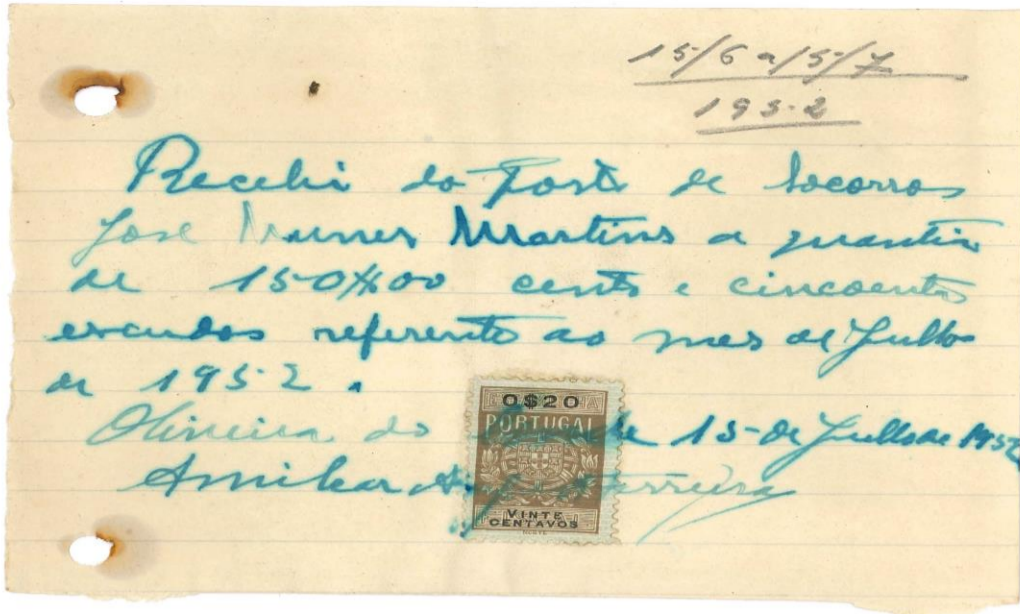 15/6 a 15/7
1952
Recebi do Posto de Socorros
José Nunes Martins a quantia
de 150$00 cento e cincoenta
escudos referente ao mes de Julho
de 1952.
Oliveira do 15 de Julho de 1952
Amilcar Ferreira
0$20
PORTUGAL
VINTE
CENTAVOS